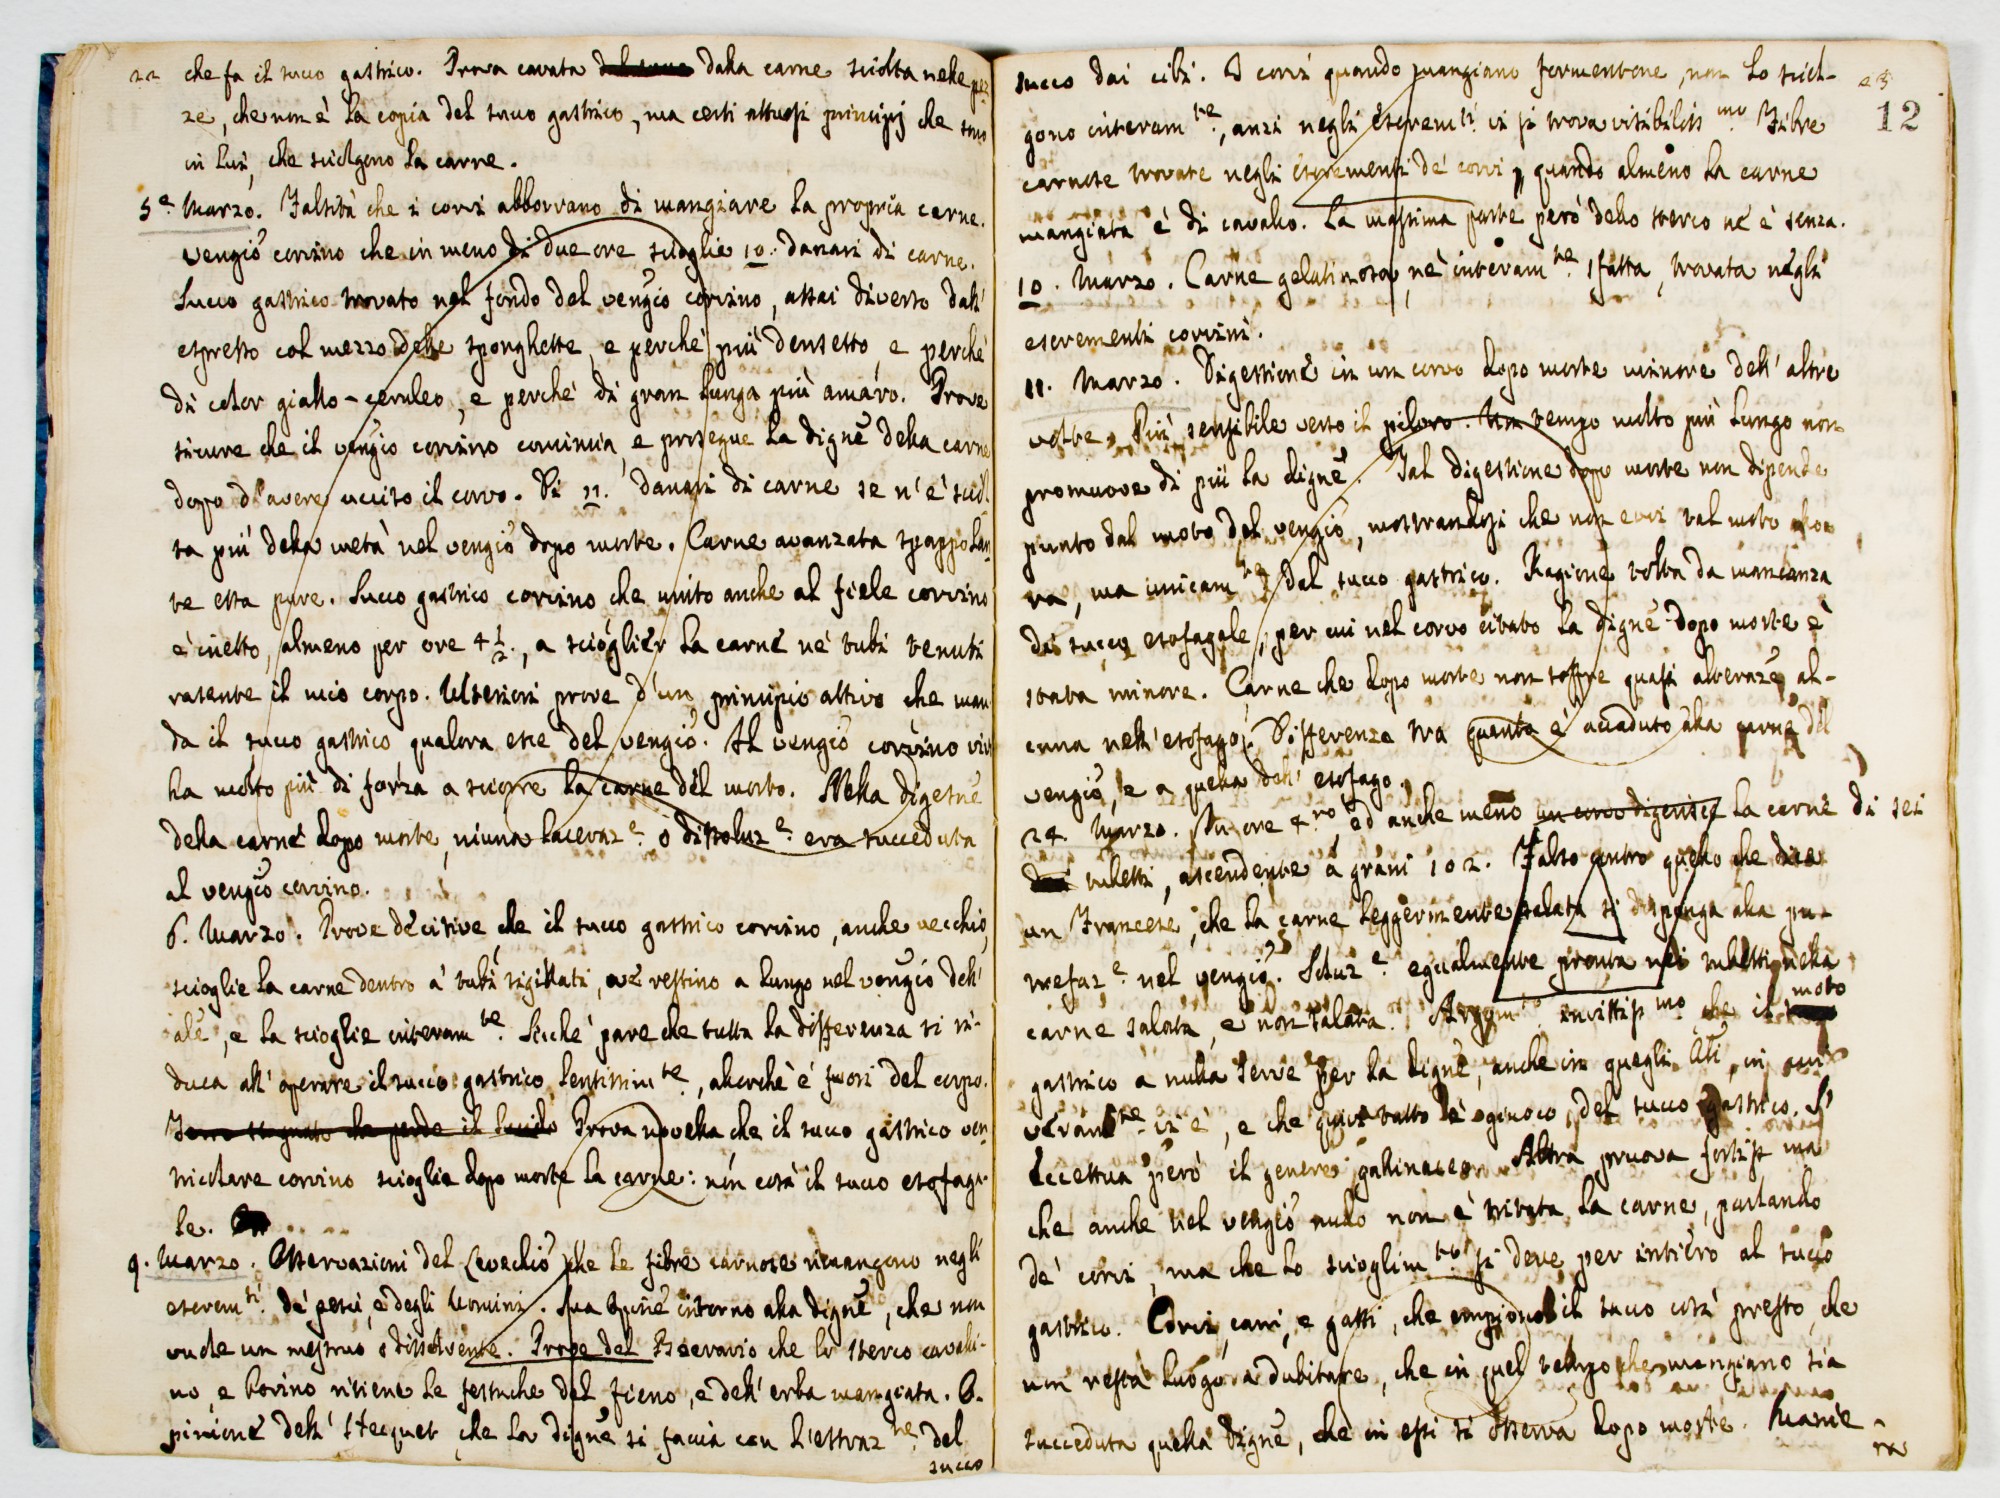 22
che fa il succo gastrico. Prova cavata dalla carne sciolta nelle pez-
ze, che non è la copia del succo gastrico, ma certi attuosi principj che sono
in lui, che sciolgono la carne.
5ª. Marzo. Falsità che i corvi abborrano di mangiare la propria carne.
Vengio corvino che in meno di due ore scioglie 10. danari di carne.
Succo gastrico trovato nel fondo del vengio corvino, assai diverso dall'
espresso col mezzo delle sponghette, e perchè più densetto, e perchè
di color giallo-ceruleo, e perchè di gran lunga più amaro. Prove
sicure che il vengio corvino comincia, e prosegue la digne della carne
dopo d'avere ucciso il corvo. Di 11. danari di carne se n'è sciol-
ta più della metà nel vengio dopo morte. Carne avanzata spappolan-
te essa pure. Succo gastrico corvino che unito anche al fiele corvino
è inetto, almeno per ore 4 1/2., a sciogliér la carne ne' tubi tenuti
rasente il mio corpo. Ulteriori prove d'un principio attivo che man-
da il succo gastrico qualora esce del vengio. Il vengio corvino vivo
ha molto più di forza a sciorre la carne del morto. Nella digesne
della carne dopo morte, niuna laceraz.e o dissoluz.e era succeduta
al vengio corvino.
6. Marzo. Prove decisive, che il succo gastrico corvino, anche vecchio,
scioglie la carne dentro a' tubi sigillati, ove restino a lungo nel vengio dell'
ale, e la scioglie interam.te Sicchè pare che tutta la differenza si ri-
duca all' operare il succo gastrico lentissim.te, allorchè è fuori del corpo.
Prova novella che il succo gastrico ven-
tricolare corvino scioglie dopo morte la carne: non così il succo esofaga-
le.
9. Marzo. Osservazioni del che le fibre carnose rimangono negli
escrem.ti de' pesci, e degli Uomini. Sua opine intorno alla digne, che non
vuole un mestruo dissolvente. Prove del che lo sterco cavalli-
no, e bovino ritiene le festuche del fieno, e dell' erba mangiata. O-
pinione dell' Hecquet che la digne si faccia con l'estraz.ne del
succo
23
12
succo dai cibi. I corvi quando mangiano formentone, non lo sciol-
gono interam.te, anzi negli escrem.ti vi si trova visibiliss.mo Fibre
carnose trovate negli escrementi de' corvi, quando almeno la carne
mangiata è di cavallo. La massima parte però dello sterco ne è senza.
10. Marzo. Carne gelatinosa, nè interam.te sfatta, trovata negli
escrementi corvini.
11. Marzo. Digestione in un corvo dopo morte minore dell' altre
volte. Più sensibile verso il piloro. Un tempo molto più lungo non
promuove di più la digne. Tal digestione dopo morte non dipende
punto dal moto del vengio, mostrandosi che non evvi tal moto allo-
ra, ma unicam.te dal succo gastrico. Ragione tolta da mancanza
di succo esofagale, per cui nel corvo cibato la digne dopo morte è
stata minore. Carne che dopo morte non soffre quasi alteraze al-
cuna nell' esofago. Differenza tra quanto è accaduto alla carne del
vengio, e a quella dell' esofago.
24 Marzo. In ore 4.ro, ed anche meno un corvo digerisce la carne di sei
tubetti, ascendente a grani 102. Falso contro quello che dice
un Francese, che la carne leggermente salata si disponga alla pu-
trefaz.e nel vengio. Soluz.e egualmente pronta nei tubetti, nella
carne salata, e non salata. Argom.to invittiss.mo che il moto
gastrico a nulla serve per la digne, anche in quegli Ali, in cui
veram.te vi è, e che tutto è giuoco del succo gastrico. S'
eccettua però il genere gallinaceo. Altra pruova fortiss.ma
che anche nel vengio nudo non è tritata la carne, parlando
de' corvi, ma che lo scioglim.to si deve per intiero al succo
gastrico. Corvi, cani, e gatti, che empiono il succo così presto, che
non resta luogo a dubitare, che in quel tempo che mangiano sia
succeduta quella digne, che in essi si osserva dopo morte. Manie-
ra